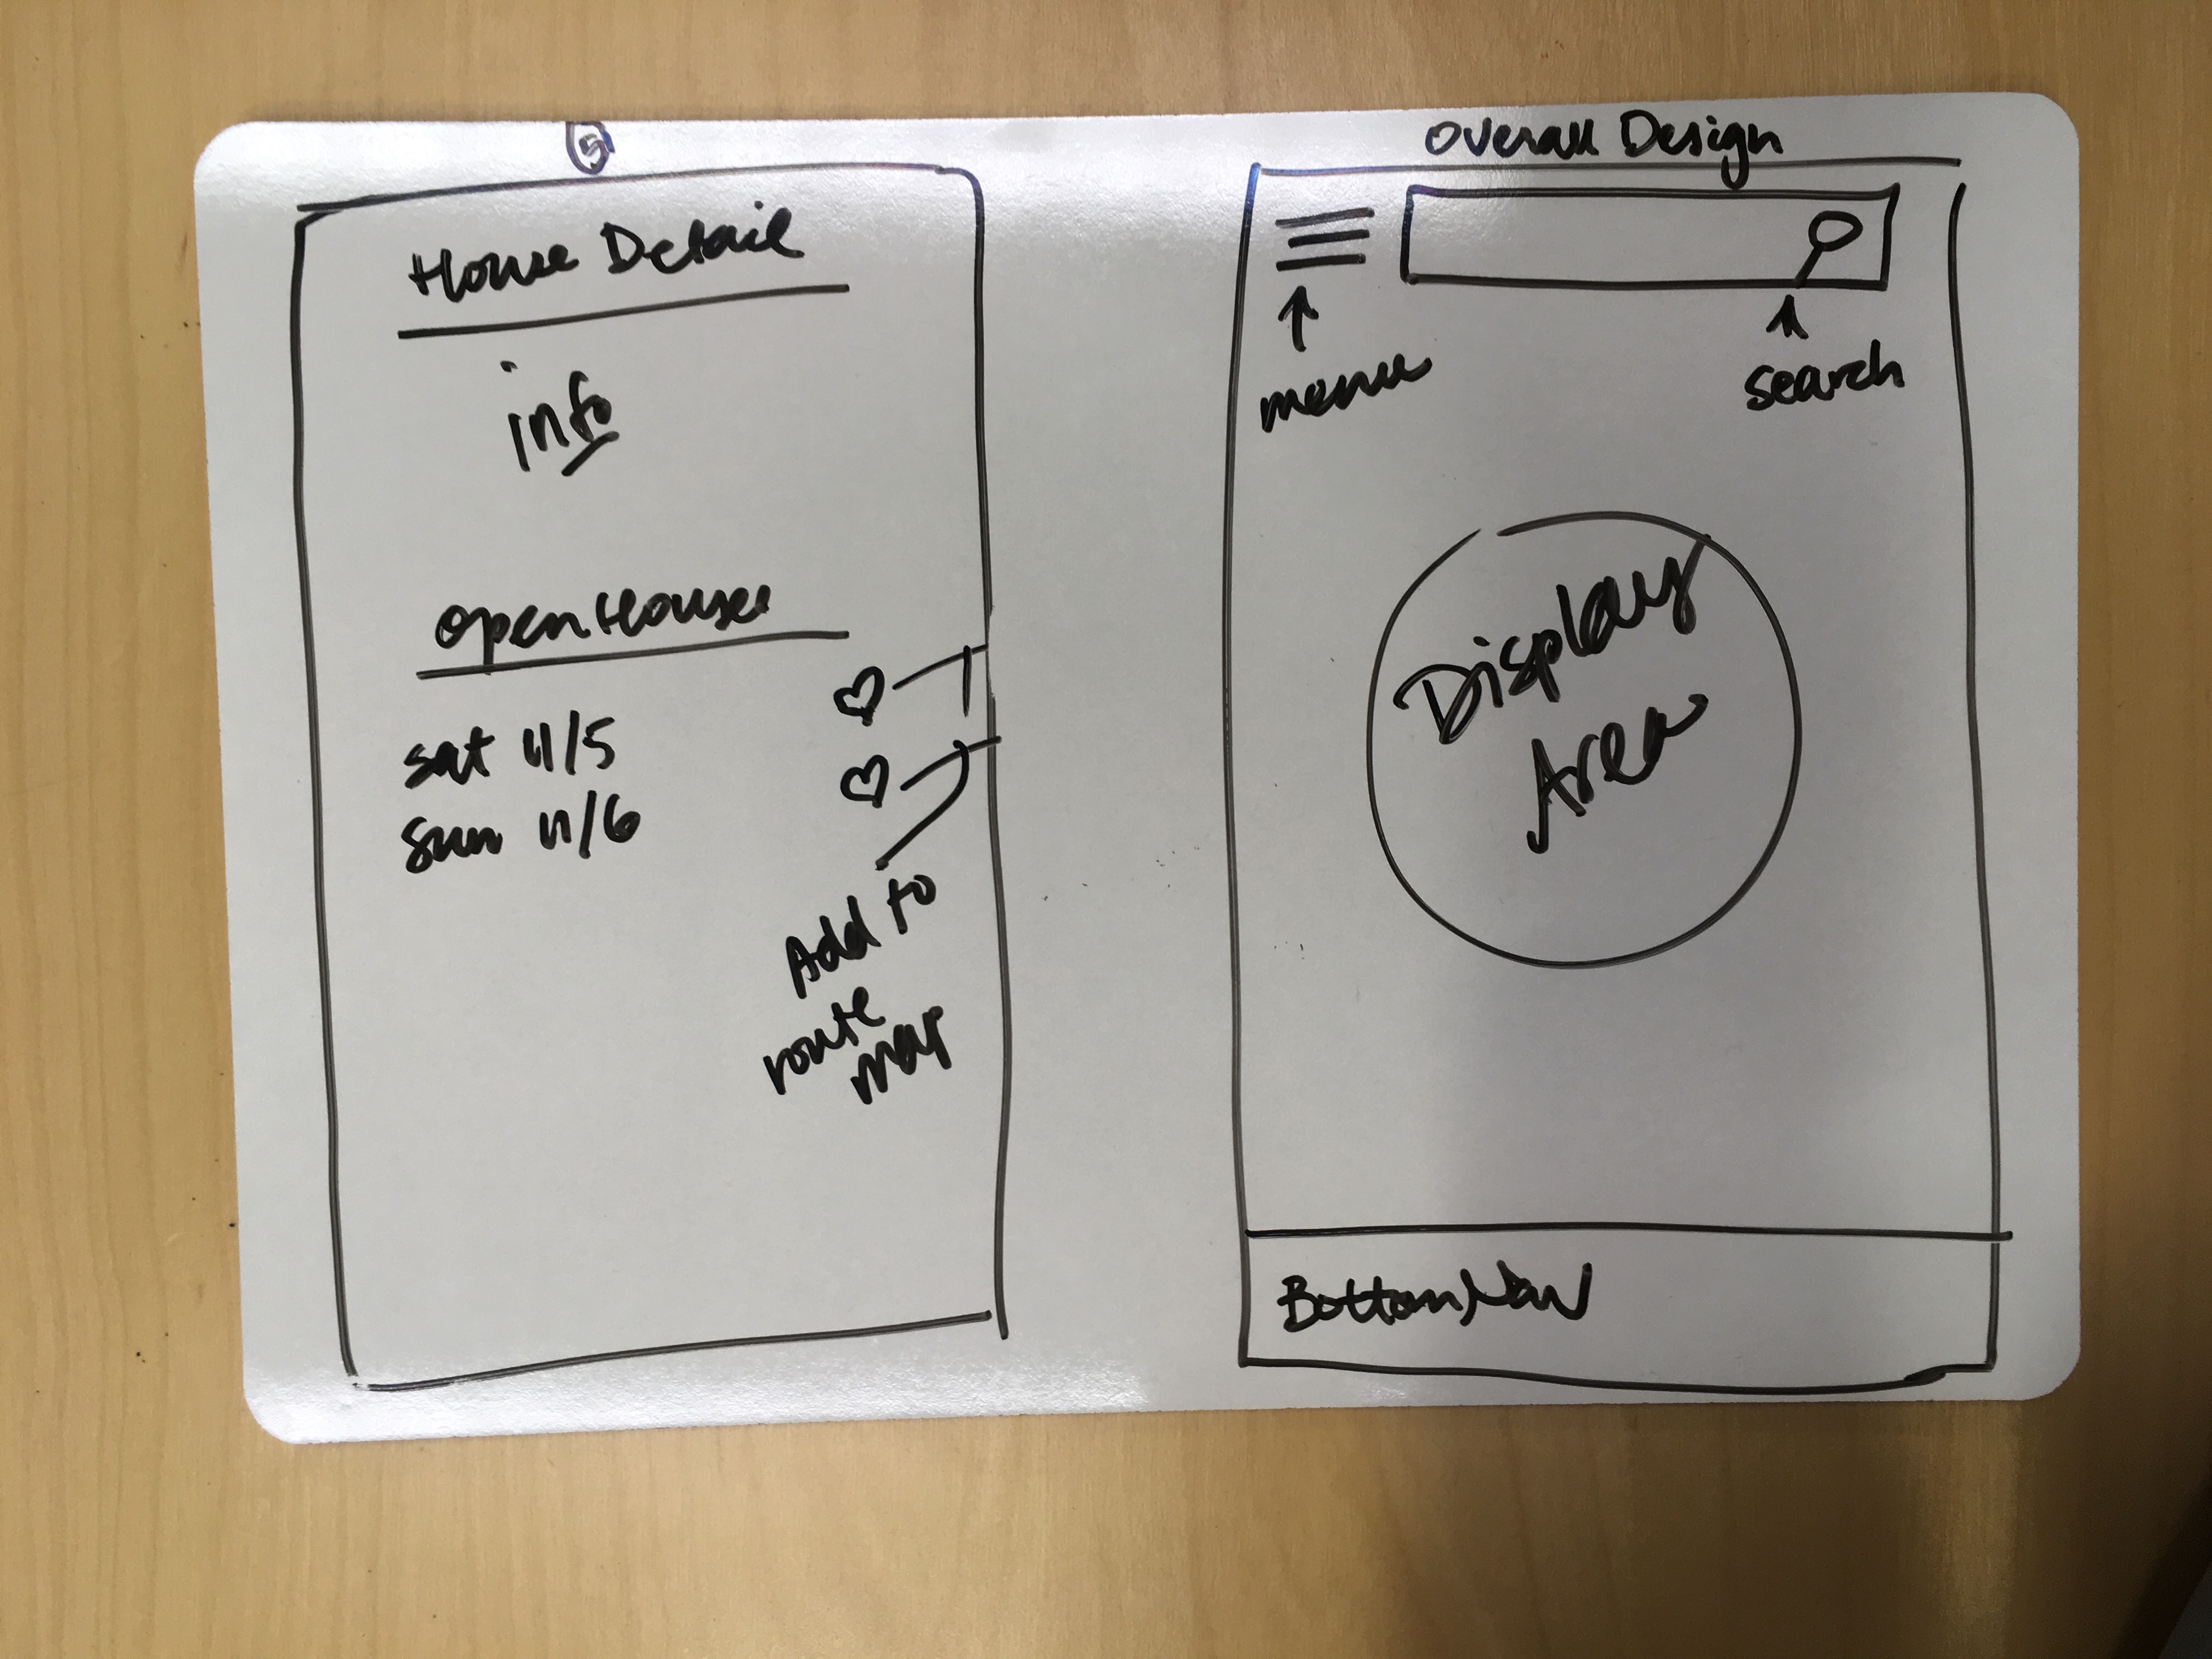 5
House Detail
info
open House
sat 11/5
sun 11/6
Add to
route
map
Overall Design
menu
search
Display
Area
Bottom Nav